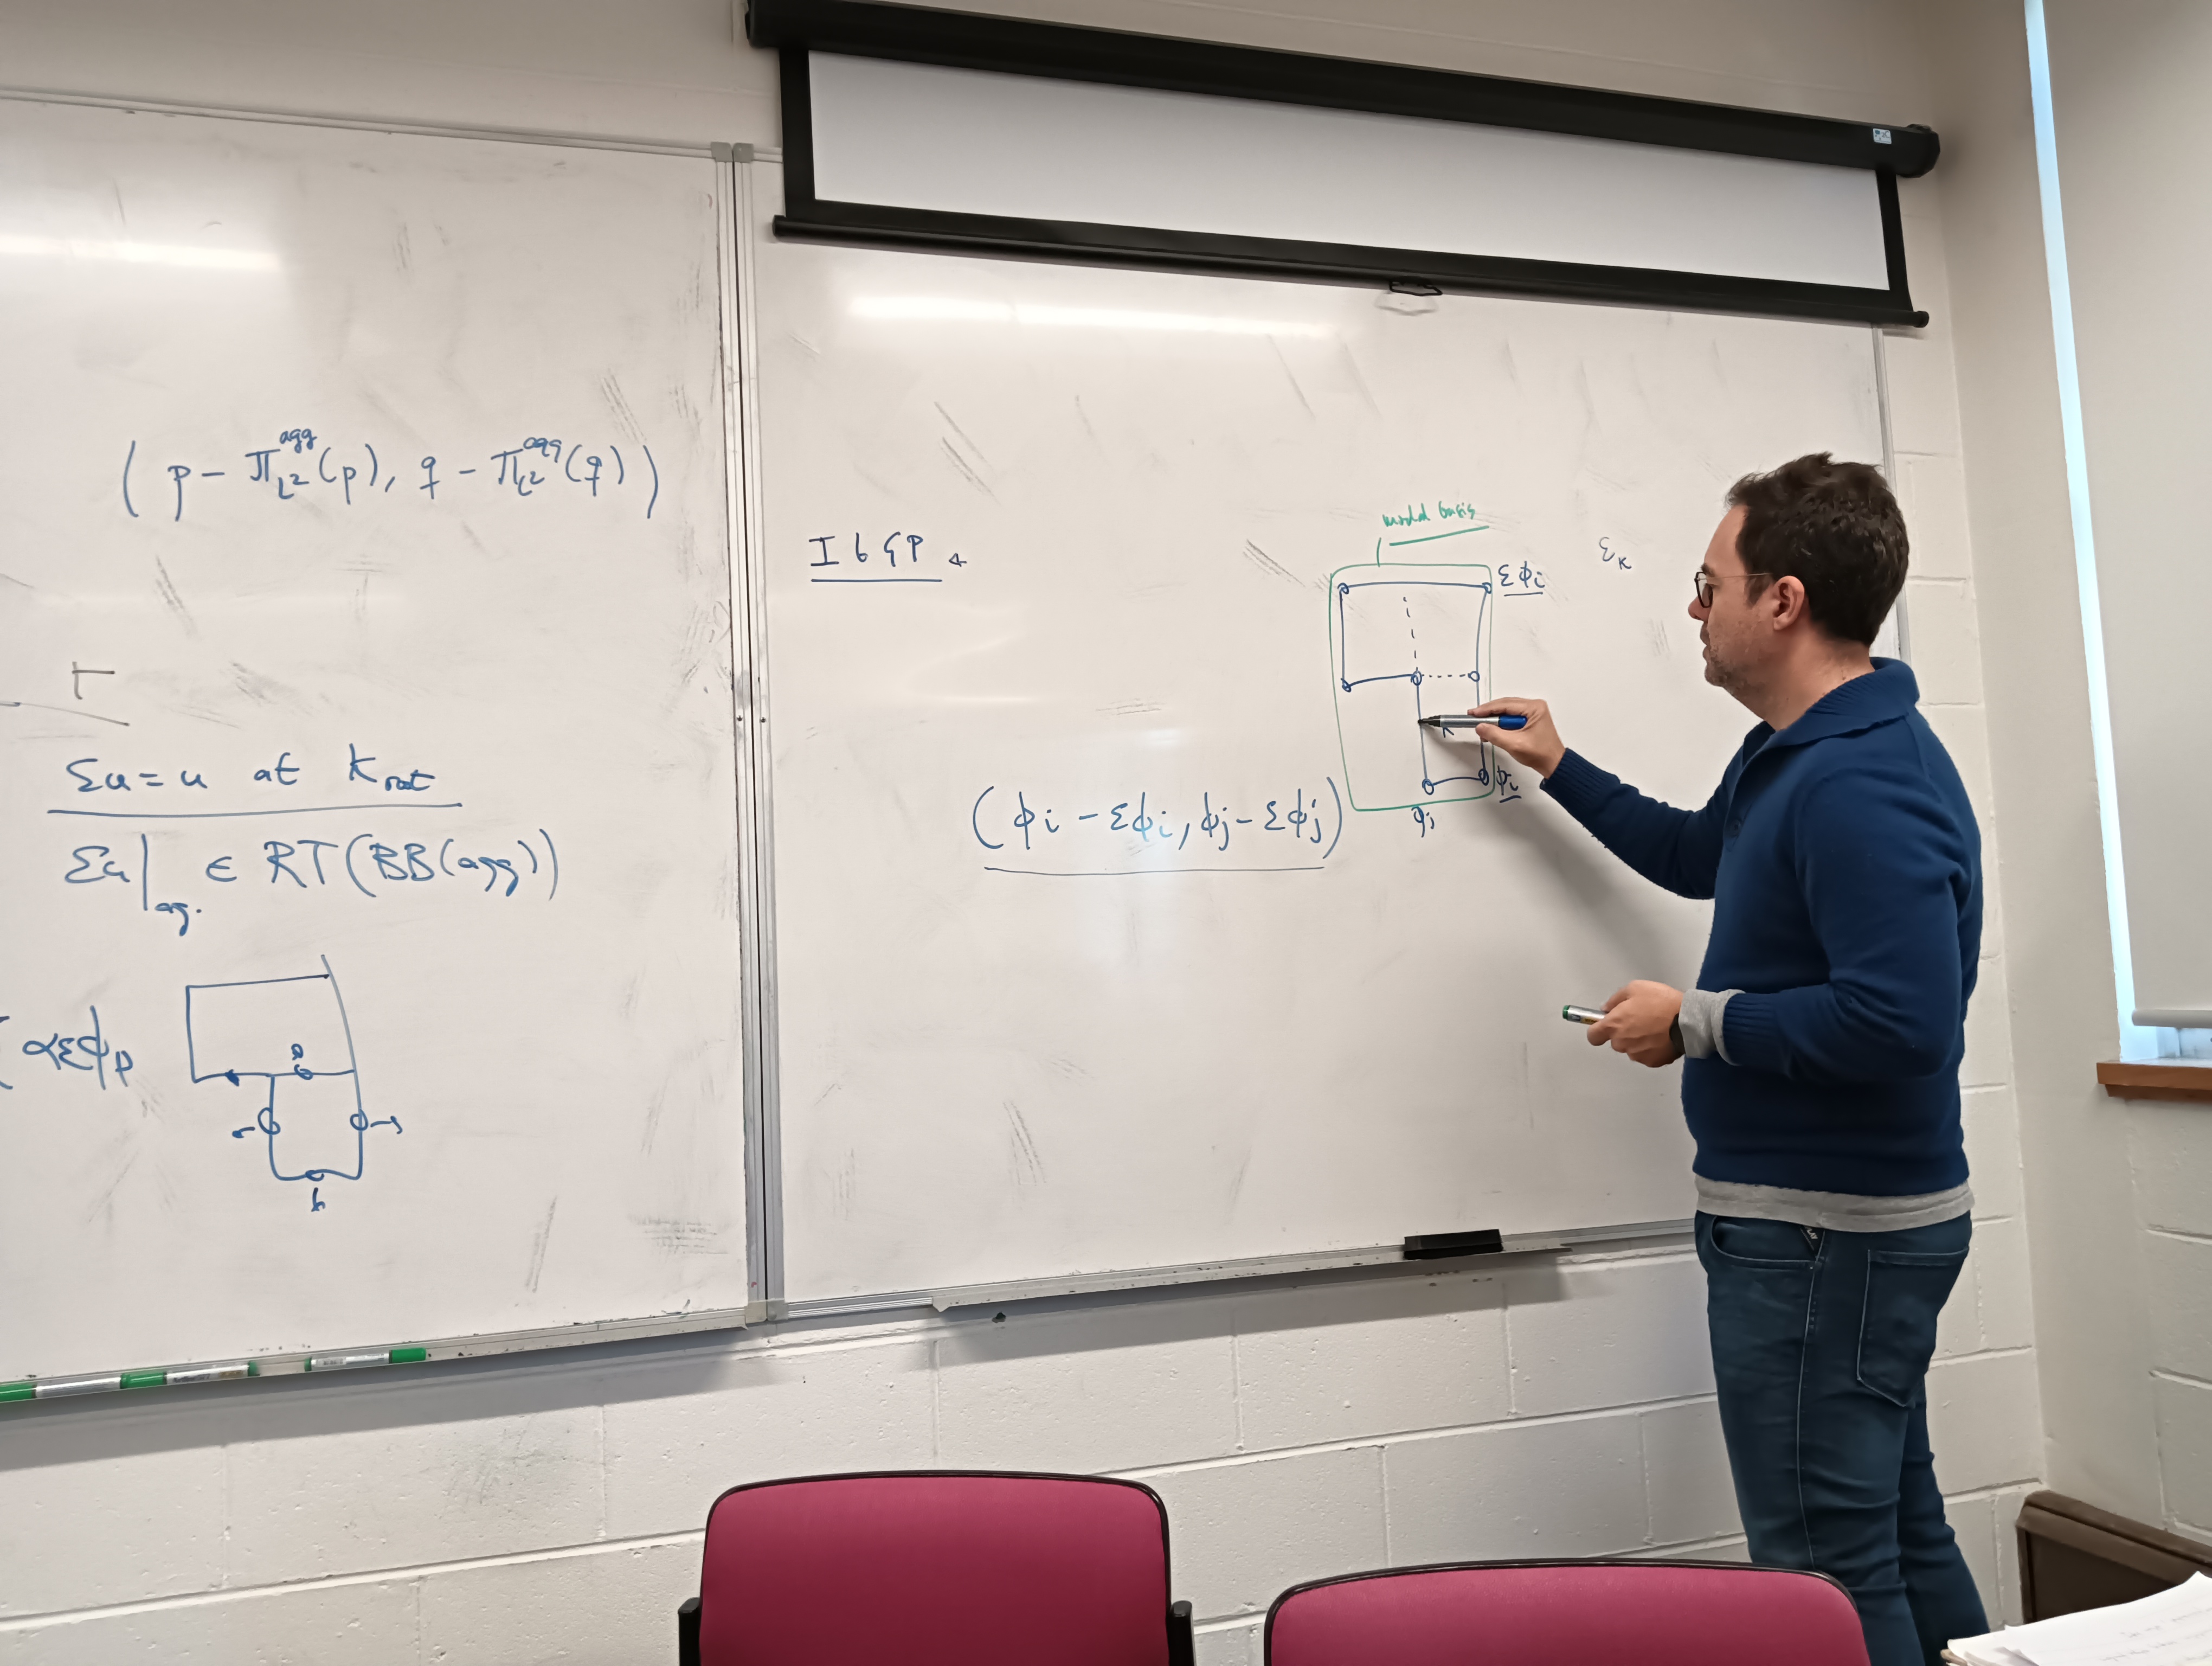 ( p - π_{L²}^{agg}(p), q - π_{L²}^{agg}(q) )
Γ
Ɛu = u at K_{root}
Ɛu|_{ag.} ∈ RT(BB(agg))
αƐϕ_p
I b G P
modal basis
Ɛϕi
Ɛ_K
K
ϕi
ϕj
(ϕi - Ɛϕi, ϕj - Ɛϕj)